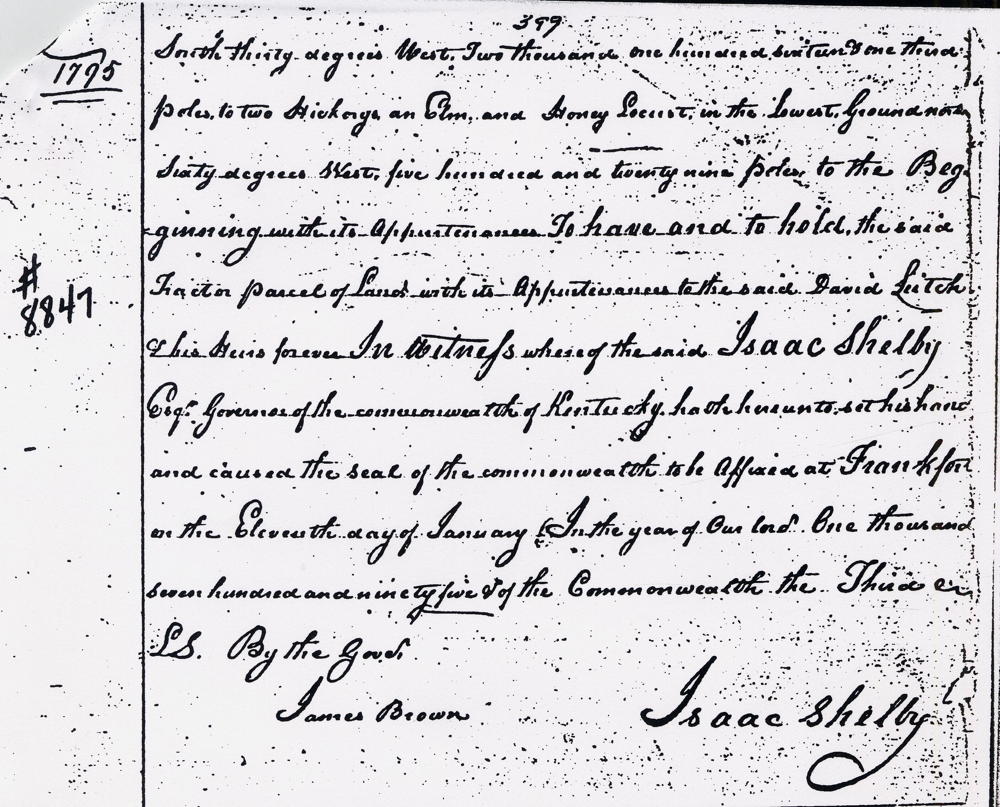 399
1795
South thirty degrees West, Two thousand one hundred sixteen & one third
poles, to two Hickorys an Elm, and Honey Locust, in the Lowest Ground north
Sixty degrees West, five hundred and twenty nine poles, to the Beg
=ginning with its Appurtenances To have and to hold, the said
Tract or parcel of Land with its Appurtenances to the said David Leitch
# 8847
& his Heirs forever In Witness whereof the said Isaac Shelby
Esqr. Governor of the commonwealth of Kentucky, hath hereunto set his hand
and caused the seal of the commonwealth to be Affixed at Frankfort
on the Eleventh day of January In the year of Our lord One thousand
seven hundred and ninety five & of the Commonwealth the Third
LS. By the Govr.
James Brown Isaac Shelby